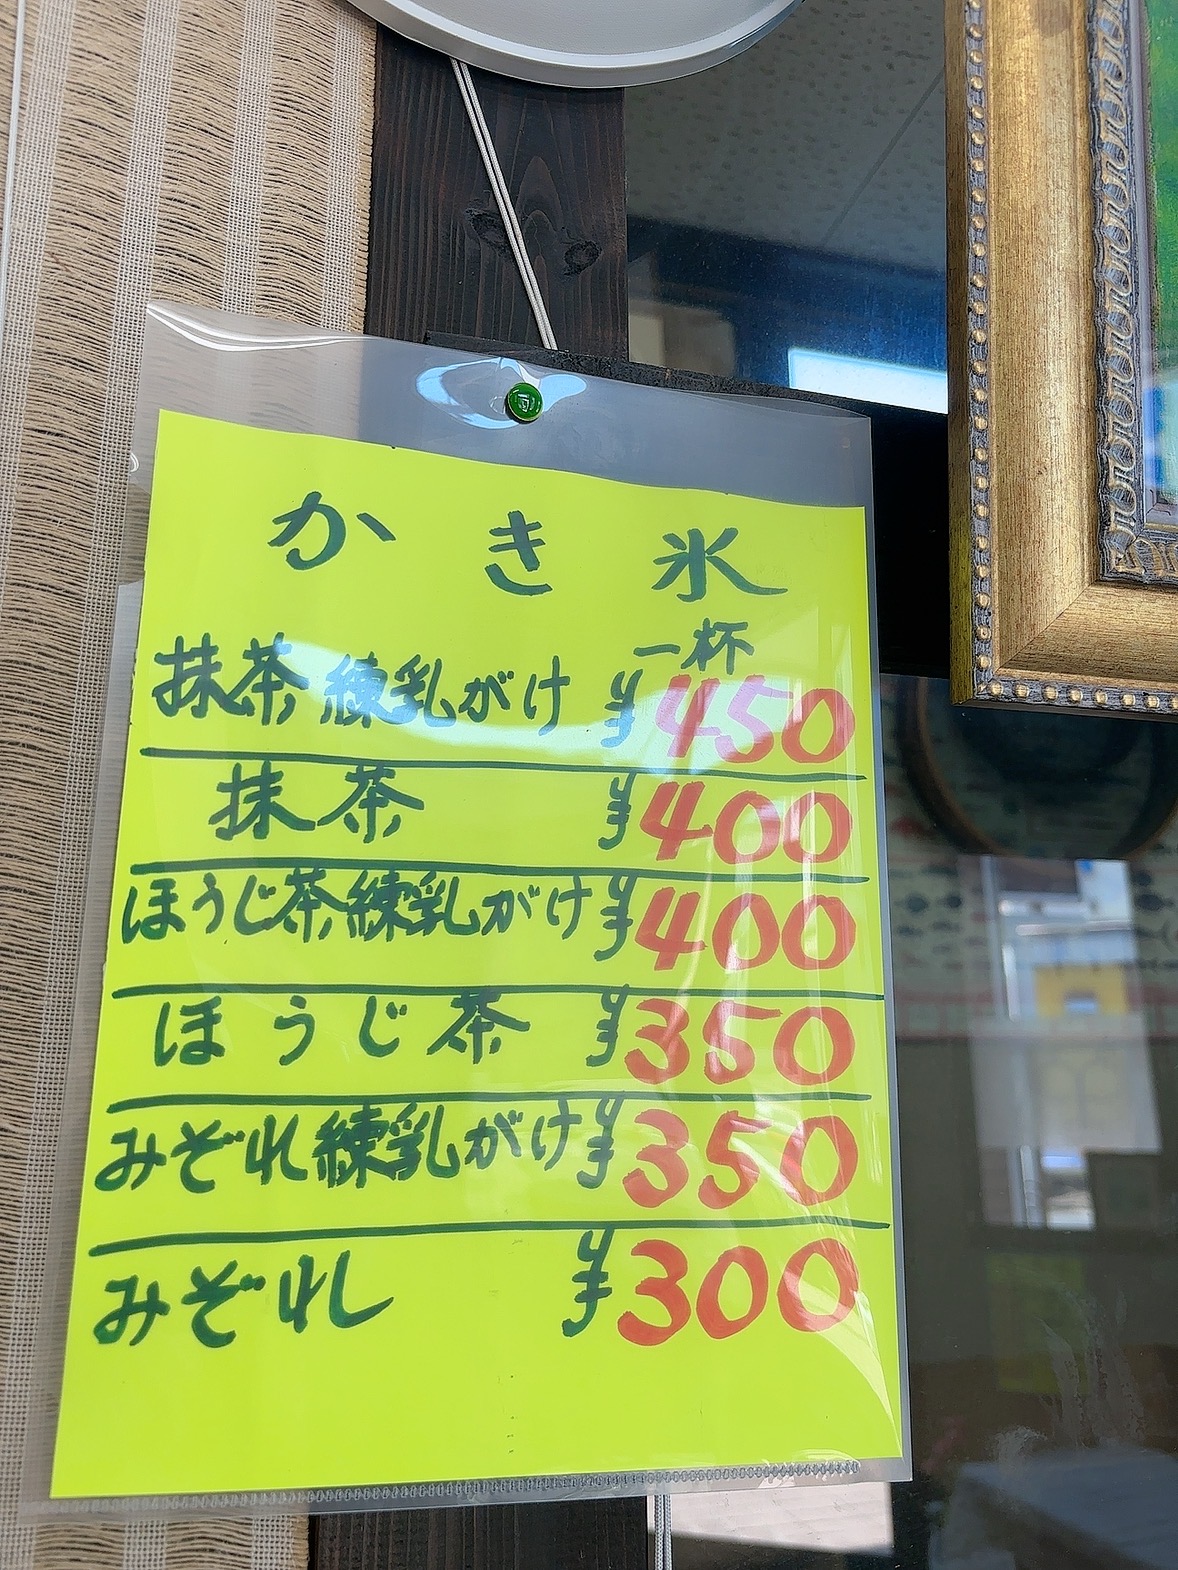 かき氷
一杯
抹茶練乳がけ ¥450
抹茶 ¥400
ほうじ茶練乳がけ ¥400
ほうじ茶 ¥350
みぞれ練乳がけ ¥350
みぞれ ¥300